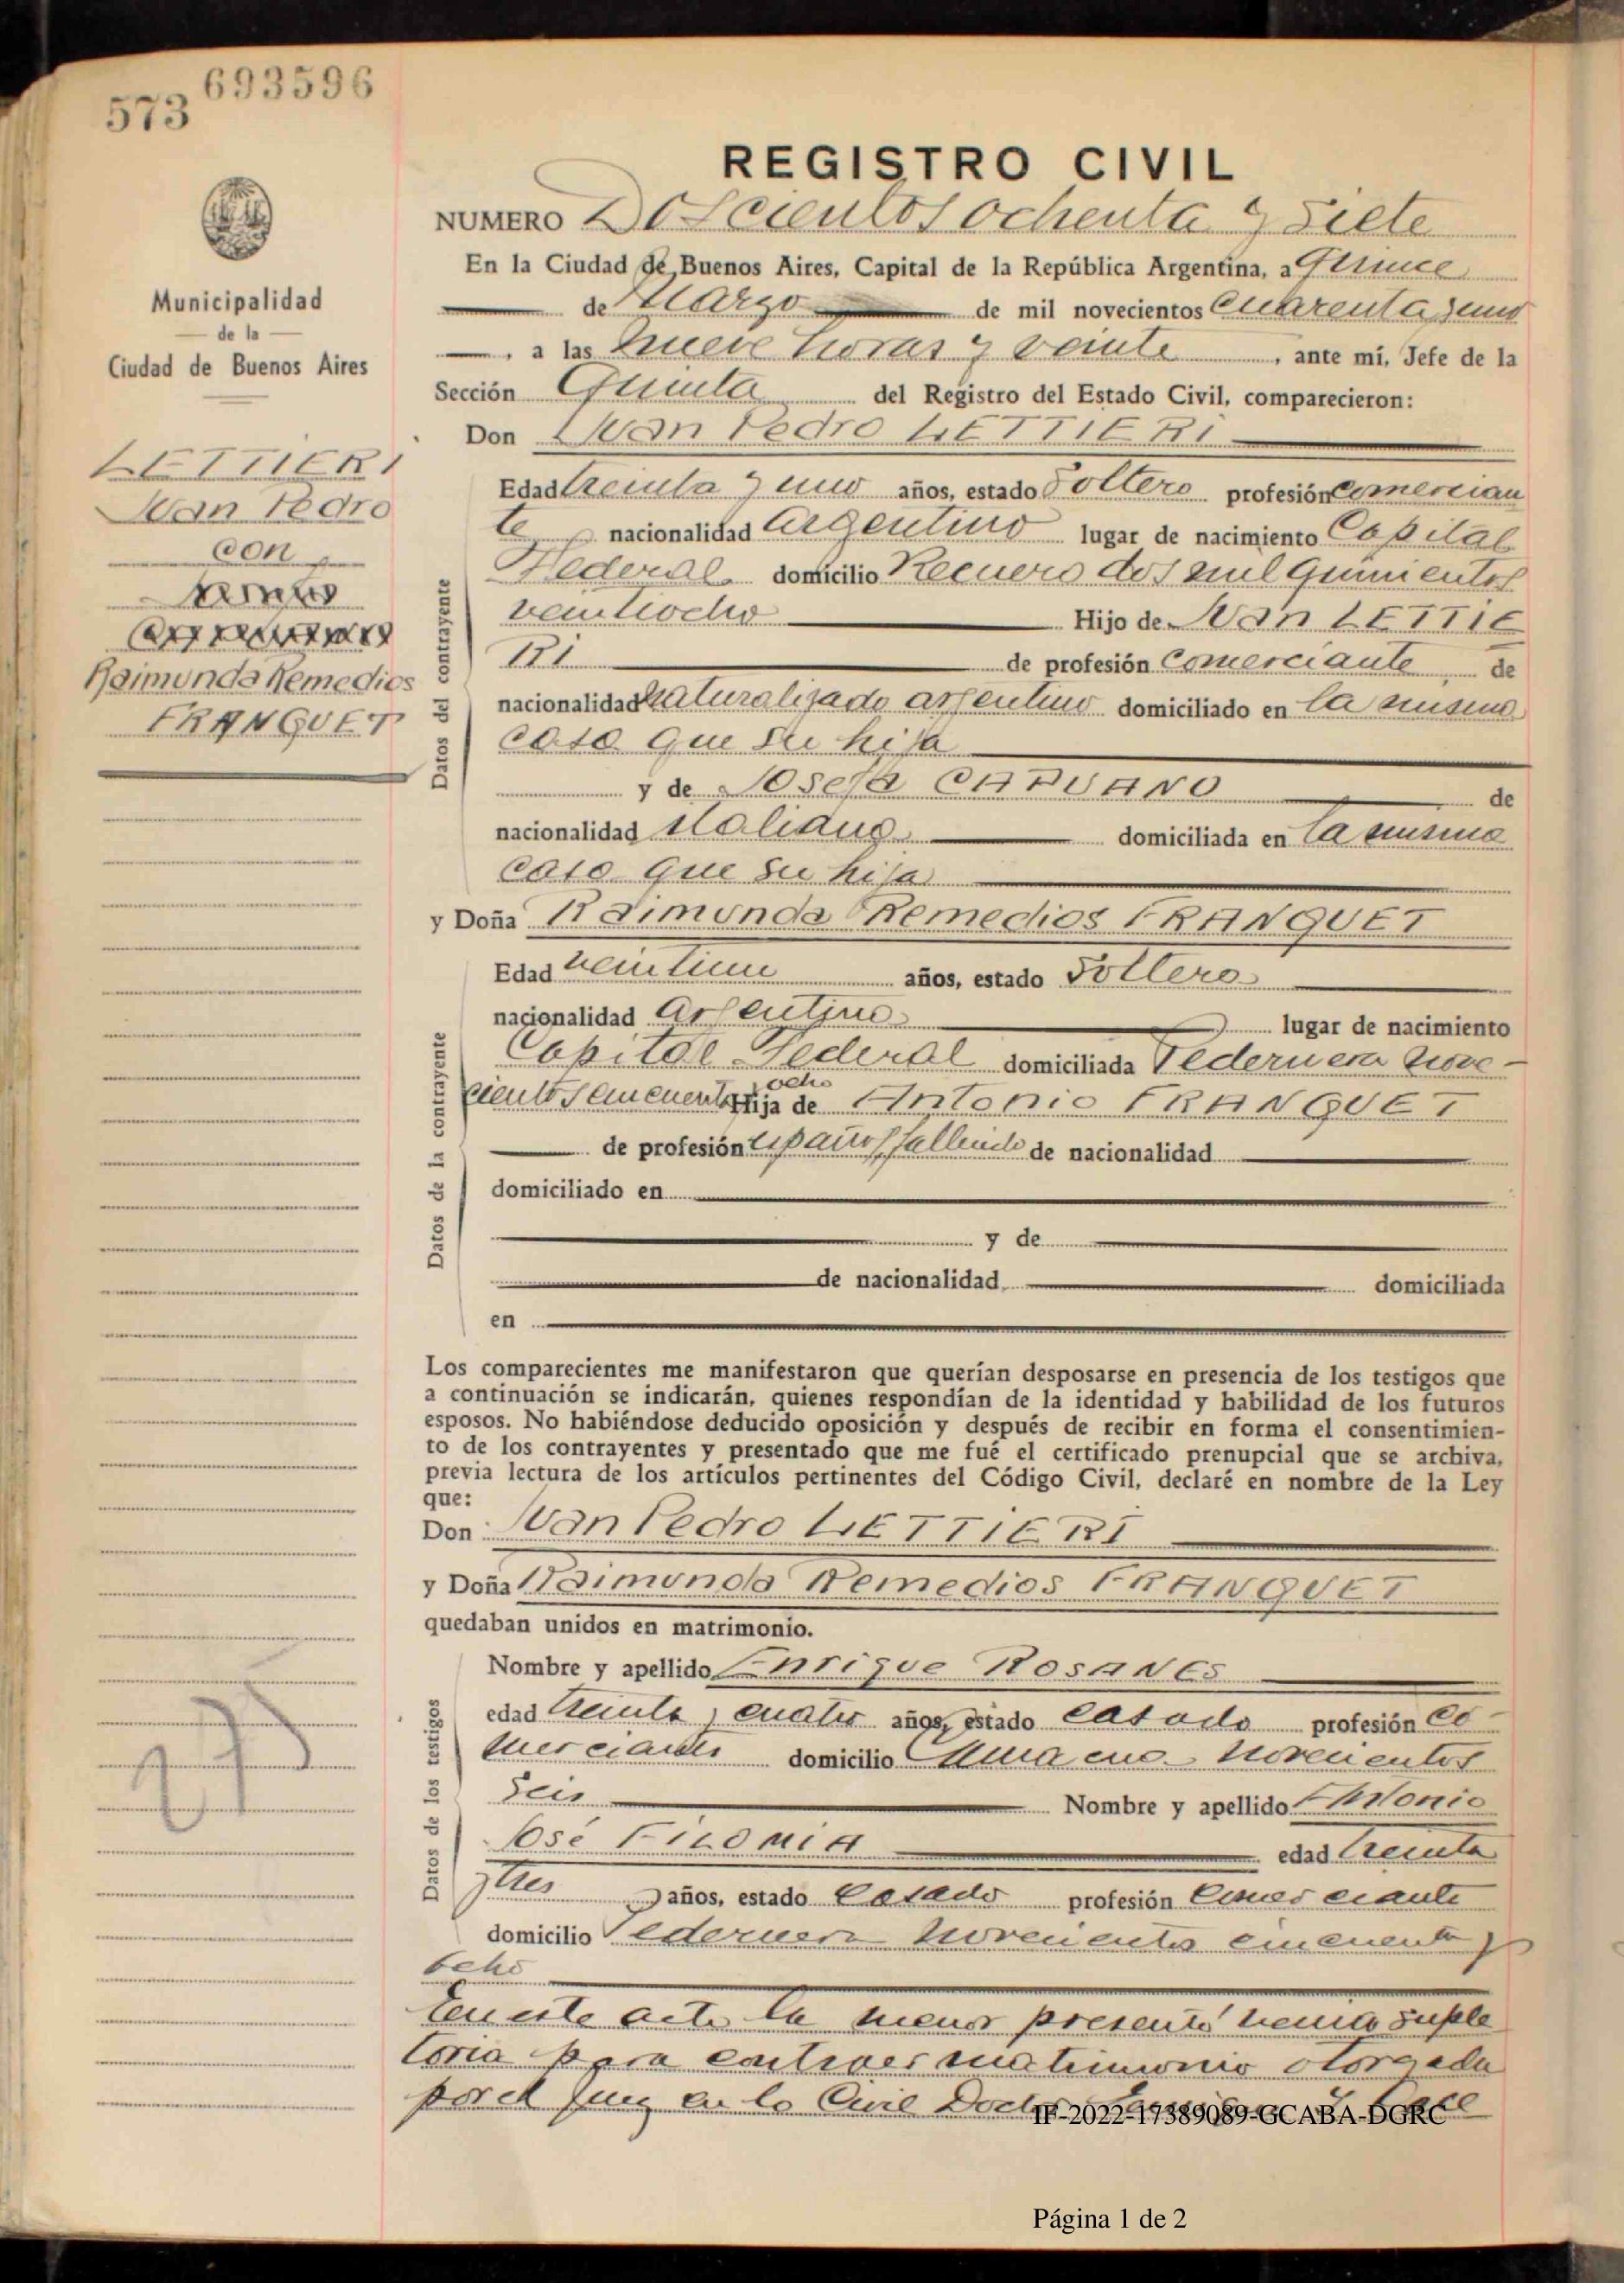 573 693596
REGISTRO CIVIL
NUMERO Doscientos ochenta y siete
En la Ciudad de Buenos Aires, Capital de la República Argentina, a Quince
de Marzo de mil novecientos Cuarenta y uno
, a las nueve horas y veinte , ante mí, Jefe de la
Sección Quinta del Registro del Estado Civil, comparecieron:
Don Juan Pedro LETTIERI
Municipalidad
de la
Ciudad de Buenos Aires
LETTIERI
Juan Pedro
con
Raimunda Remedios
FRANQUET
Datos del contrayente
Edad treinta y uno años, estado Soltero profesión Comercian
te nacionalidad Argentino lugar de nacimiento Capital
Federal domicilio Recuero dos mil quinientos
veintiocho Hijo de Juan LETTIE
RI de profesión Comerciante de
nacionalidad naturalizado argentino domiciliado en la misma
casa que su hijo
y de Josefa CAPUANO de
nacionalidad italiana domiciliada en la misma
casa que su hijo
y Doña Raimunda Remedios FRANQUET
Datos de la contrayente
Edad veintiun años, estado Soltera
nacionalidad Argentina lugar de nacimiento
Capital Federal domiciliada Pedernera nove-
cientos cincuenta y ocho Hija de Antonio FRANQUET
de profesión español fallecido de nacionalidad
domiciliado en
y de
de nacionalidad domiciliada
en
Los comparecientes me manifestaron que querían desposarse en presencia de los testigos que
a continuación se indicarán, quienes respondían de la identidad y habilidad de los futuros
esposos. No habiéndose deducido oposición y después de recibir en forma el consentimien-
to de los contrayentes y presentado que me fué el certificado prenupcial que se archiva,
previa lectura de los artículos pertinentes del Código Civil, declaré en nombre de la Ley
que:
Don Juan Pedro LETTIERI
y Doña Raimunda Remedios FRANQUET
quedaban unidos en matrimonio.
Datos de los testigos
Nombre y apellido Enrique ROSANES
edad treinta y cuatro años, estado casado profesión co
merciante domicilio novecientos
seis Nombre y apellido Antonio
José FILOMIA edad treinta
y tres años, estado Casado profesión Comerciante
domicilio Pedernera novecientos cincuenta y
ocho
En este acto la menor presentó venia suple
toria para contraer matrimonio otorgada
por el Juez en lo Civil Doctor
IF-2022-17389089-GCABA-DGRC
Página 1 de 2